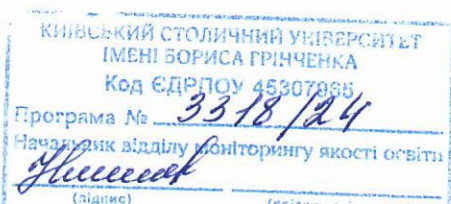 КИЇВСЬКИЙ СТОЛИЧНИЙ УНІВЕРСИТЕТ
ІМЕНІ БОРИСА ГРІНЧЕНКА
Код ЄДРПОУ 45307965
Програма № 3318/24
Начальник відділу моніторингу якості освіти
(підпис)